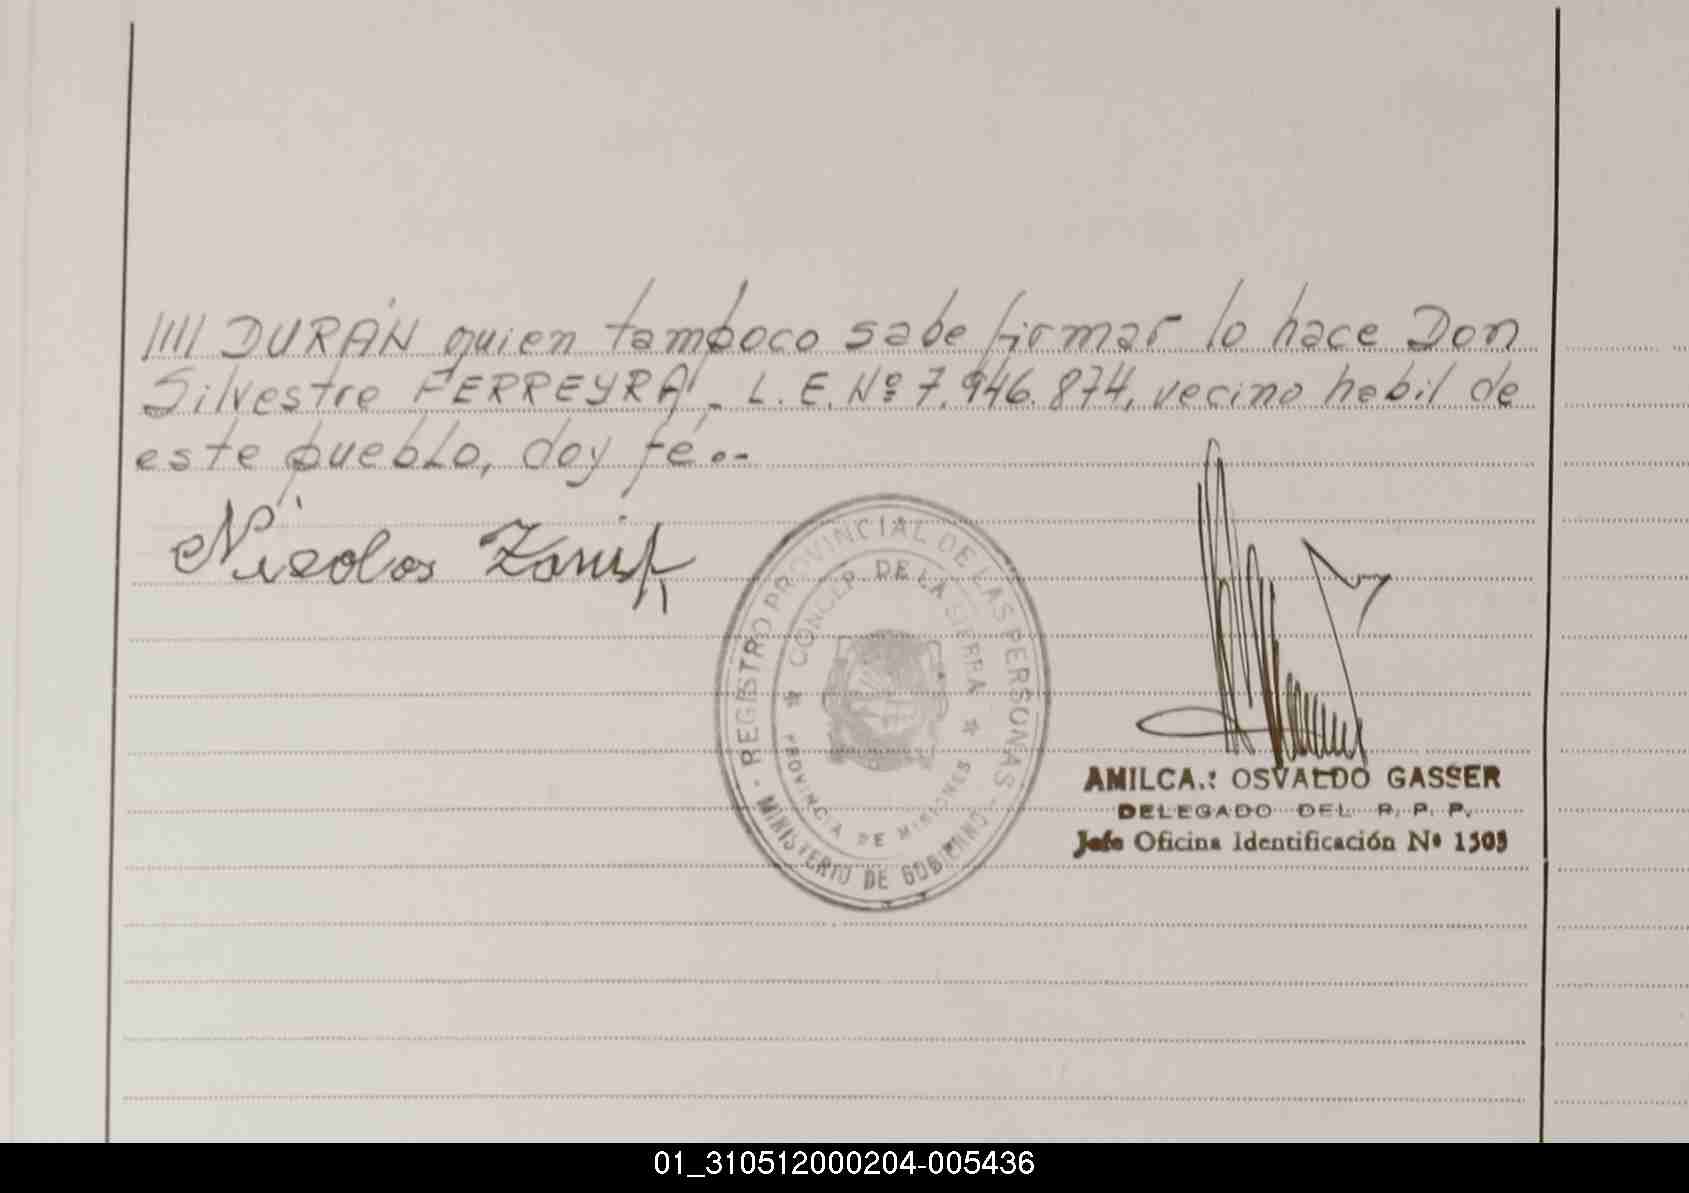 //// DURÁN quien tampoco sabe firmar lo hace Don
Silvestre FERREYRA - L.E. Nº 7.946.874, vecino habil de
este pueblo, doy fé.--
Nicolas
REGISTRO PROVINCIAL DE LAS PERSONAS
MINISTERIO DE GOBIERNO
CONCEP. DE LA SIERRA
PROVINCIA DE MISIONES
AMILCA.: OSVALDO GASSER
DELEGADO DEL R. P. P.
Jefe Oficina Identificación Nº 1505
01_310512000204-005436